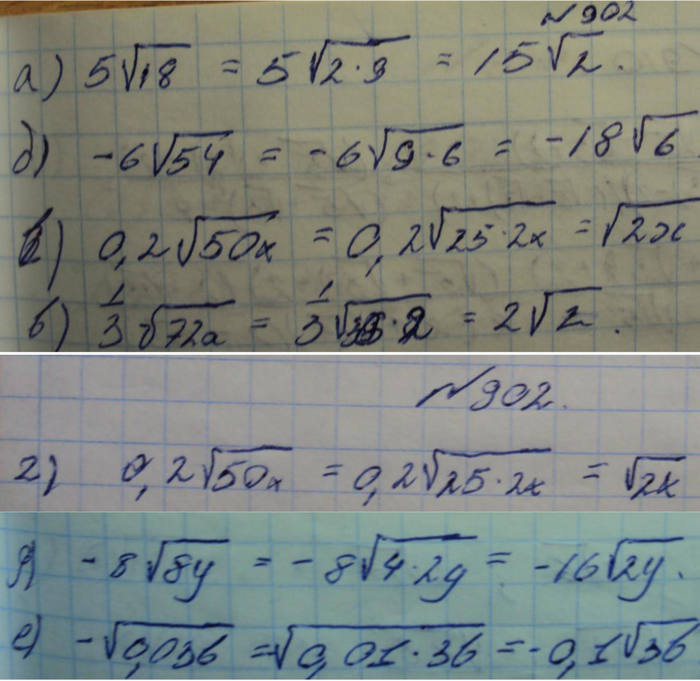 №902
а) 5√18 = 5√2·9 = 15√2.
д) -6√54 = -6√9·6 = -18√6
в) 0,2√50x = 0,2√25·2x = √2x
б) 1/3 √72a = 1/3 √36·2 = 2√2.
№902.
г) 0,2√50x = 0,2√25·2x = √2x
д) -8√8y = -8√4·2y = -16√2y.
е) -√0,036 = √0,01·36 = -0,1√36